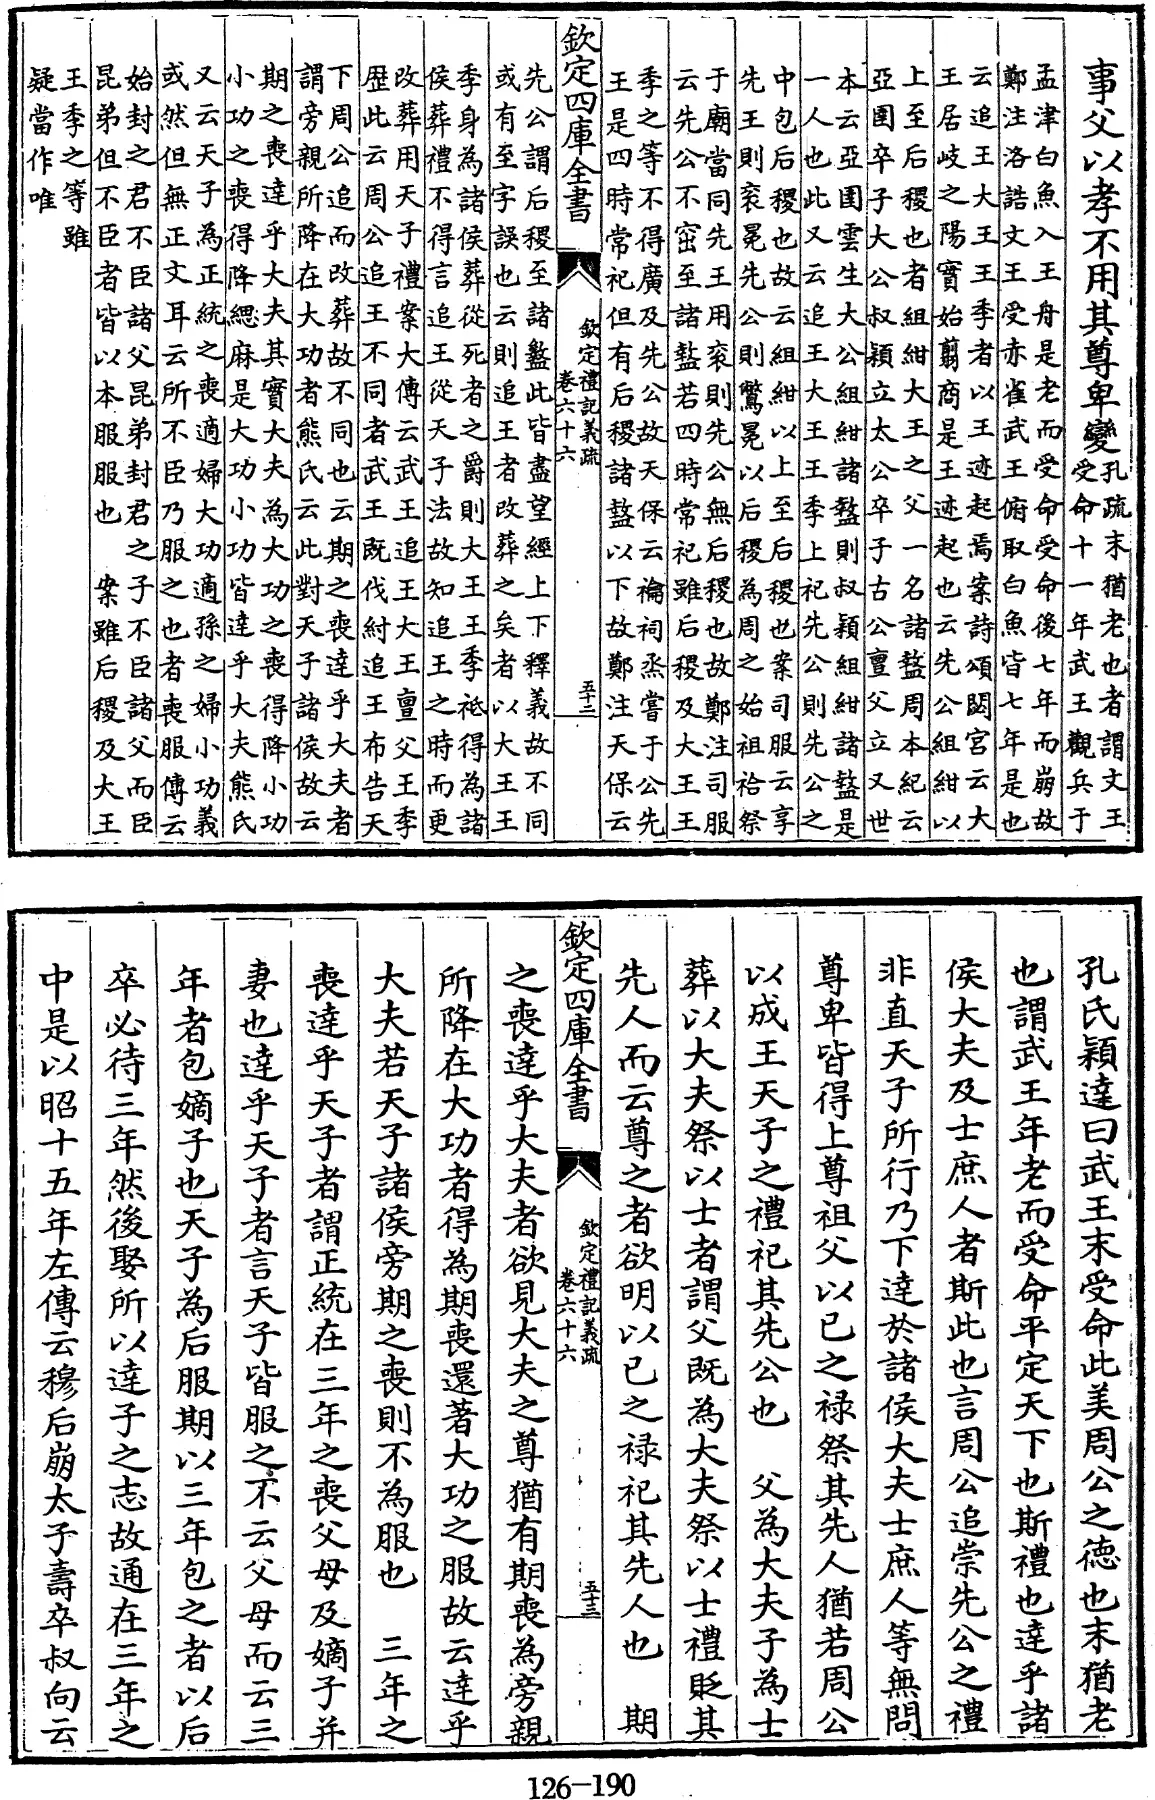 事父以孝不用其尊卑變孔疏末猶老也者謂文王
受命十一年武王觀兵于
孟津白魚入王舟是老而受命受命後七年而崩故
鄭注洛誥文王受赤雀武王俯取白魚皆七年是也
云追王大王王季者以王迹起焉案詩頌閟宮云大
王居岐之陽實始翦商是王迹起也云先公組紺以
上至后稷也者組紺大王之父一名諸盩周本紀云
亞圉卒子大公叔穎立太公卒子古公亶父立又世
本云亞圉雲生大公組紺諸盩則叔穎組紺諸盩是
一人也此又云追王大王王季上祀先公則先公之
中包后稷也故云組紺以上至后稷也案司服云享
先王則衮冕先公則驚冕以后稷為周之始祖祫祭
于廟當同先王用衮則先公無后稷也故鄭注司服
云先公不窋至諸盩若四時常祀雖后稷及大王王
季之等不得廣及先公故天保云禴祠烝嘗于公先
王是四時常祀但有后稷諸盩以下故鄭注天保云
欽定四庫全書
欽定禮記義疏
卷六十六
五十二
先公謂后稷至諸盩此皆盡望經上下釋義故不同
或有至字誤也云則追王者改葬之矣者以大王王
季身為諸侯葬從死者之爵則大王王季祇得為諸
侯葬禮不得言追王從天子法故知追王之時而更
改葬用天子禮案大傳云武王追王大王亶父王季
歴此云周公追王不同者武王既伐紂追王布告天
下周公追而改葬故不同也云期之喪達乎大夫者
謂旁親所降在大功者熊氏云此對天子諸侯故云
期之喪達乎大夫其實大夫為大功之喪得降小功
小功之喪得降緦麻是大功小功皆達乎大夫熊氏
又云天子為正統之喪適婦大功適孫之婦小功義
或然但無正文耳云所不臣乃服之也者喪服傳云
始封之君不臣諸父昆弟封君之子不臣諸父而臣
昆弟但不臣者皆以本服服也　案雖后稷及大王
王季之等雖
疑當作唯
孔氏穎達曰武王末受命此美周公之德也末猶老
也謂武王年老而受命平定天下也斯禮也達乎諸
侯大夫及士庶人者斯此也言周公追崇先公之禮
非直天子所行乃下達於諸侯大夫士庶人等無問
尊卑皆得上尊祖父以已之禄祭其先人猶若周公
以成王天子之禮祀其先公也　父為大夫子為士
葬以大夫祭以士者謂父既為大夫祭以士禮貶其
先人而云尊之者欲明以已之禄祀其先人也　期
欽定四庫全書
欽定禮記義疏
卷六十六
五十三
之喪達乎大夫者欲見大夫之尊猶有期喪為旁親
所降在大功者得為期喪還著大功之服故云達乎
大夫若天子諸侯旁期之喪則不為服也　三年之
喪達乎天子者謂正統在三年之喪父母及嫡子并
妻也達乎天子者言天子皆服之不云父母而云三
年者包嫡子也天子為后服期以三年包之者以后
卒必待三年然後娶所以達子之志故通在三年之
中是以昭十五年左傳云穆后崩太子壽卒叔向云
126-190